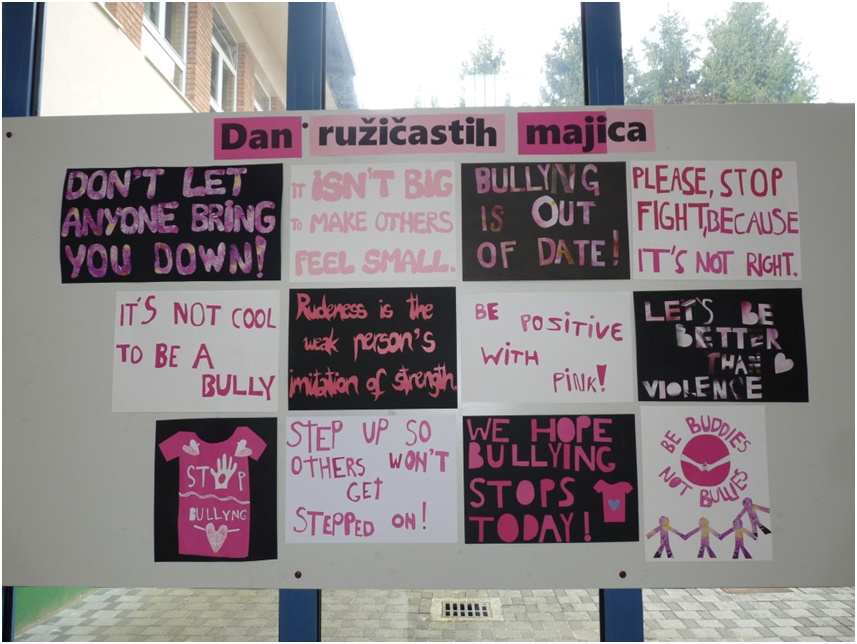 Dan ružičastih majica
DON'T LET
ANYONE BRING
YOU DOWN!
IT ISN'T BIG
TO MAKE OTHERS
FEEL SMALL.
BULLYNG
IS OUT
OF DATE!
PLEASE, STOP
FIGHT, BECAUSE
IT'S NOT RIGHT.
IT'S NOT COOL
TO BE A
BULLY
Rudeness is the
weak person's
imitation of strength
BE POSITIVE
WITH
PINK!
LET'S BE
BETTER
THAN
VIOLENCE
STOP
BULLYNG
STEP UP SO
OTHERS WON'T
GET
STEPPED ON!
WE HOPE
BULLYING
STOPS
TODAY!
BE BUDDIES
NOT BULLIES